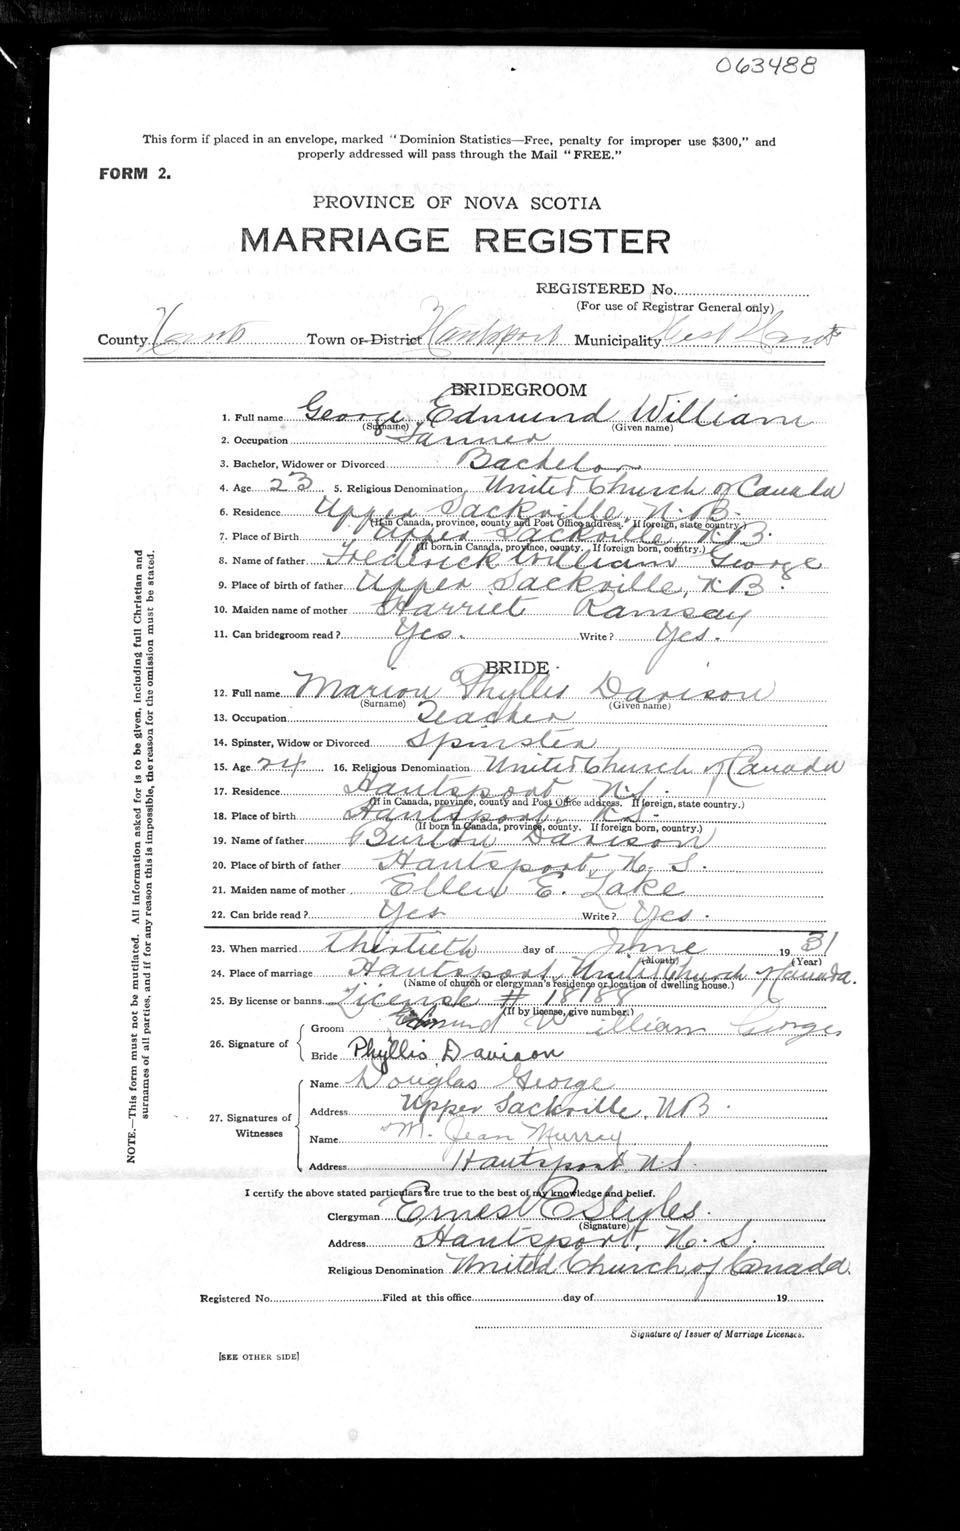 063488
This form if placed in an envelope, marked "Dominion Statistics—Free, penalty for improper use $300," and
properly addressed will pass through the Mail "FREE."
FORM 2.
PROVINCE OF NOVA SCOTIA
MARRIAGE REGISTER
REGISTERED No.
(For use of Registrar General only)
County Hants Town or District Hantsport Municipality West Hants
BRIDEGROOM
1. Full name George Edmund William
(Surname) (Given name)
2. Occupation
3. Bachelor, Widower or Divorced Bachelor
4. Age 23 5. Religious Denomination United Church of Canada
6. Residence Upper Sackville, N.B.
(If in Canada, province, county and Post Office address. If foreign, state country.)
7. Place of Birth Upper Sackville, N.B.
(If born in Canada, province, county. If foreign born, country.)
8. Name of father Frederick William George
9. Place of birth of father Upper Sackville, N.B.
10. Maiden name of mother Harriet Ramsay
11. Can bridegroom read? Yes. Write? Yes.
BRIDE
12. Full name Marion Phyllis Davison
(Surname) (Given name)
13. Occupation Teacher
14. Spinster, Widow or Divorced Spinster
15. Age 24 16. Religious Denomination United Church of Canada
17. Residence Hantsport, N.S.
(If in Canada, province, county and Post Office address. If foreign, state country.)
18. Place of birth Hantsport, N.S.
(If born in Canada, province, county. If foreign born, country.)
19. Name of father Burton Davison
20. Place of birth of father Hantsport, N.S.
21. Maiden name of mother Ellen E. Lake
22. Can bride read? Yes Write? Yes.
23. When married thirtieth day of June 1931
(Month) (Year)
24. Place of marriage Hantsport, United Church of Canada.
(Name of church or clergyman's residence or location of dwelling house.)
25. By license or banns License # 18188
(If by license, give number.)
26. Signature of
Groom Edmund William George
Bride Phyllis Davison
27. Signatures of Witnesses
Name Douglas George
Address Upper Sackville, N.B.
Name M. Jean Murray
Address Hantsport, N.S.
I certify the above stated particulars are true to the best of my knowledge and belief.
Clergyman Ernest E Styles.
(Signature)
Address Hantsport, N.S.
Religious Denomination United Church of Canada.
Registered No. Filed at this office day of 19
Signature of Issuer of Marriage Licenses.
[SEE OTHER SIDE]
NOTE.—This form must not be mutilated. All information asked for is to be given, including full Christian and
surnames of all parties, and if for any reason this is impossible, the reason for the omission must be stated.